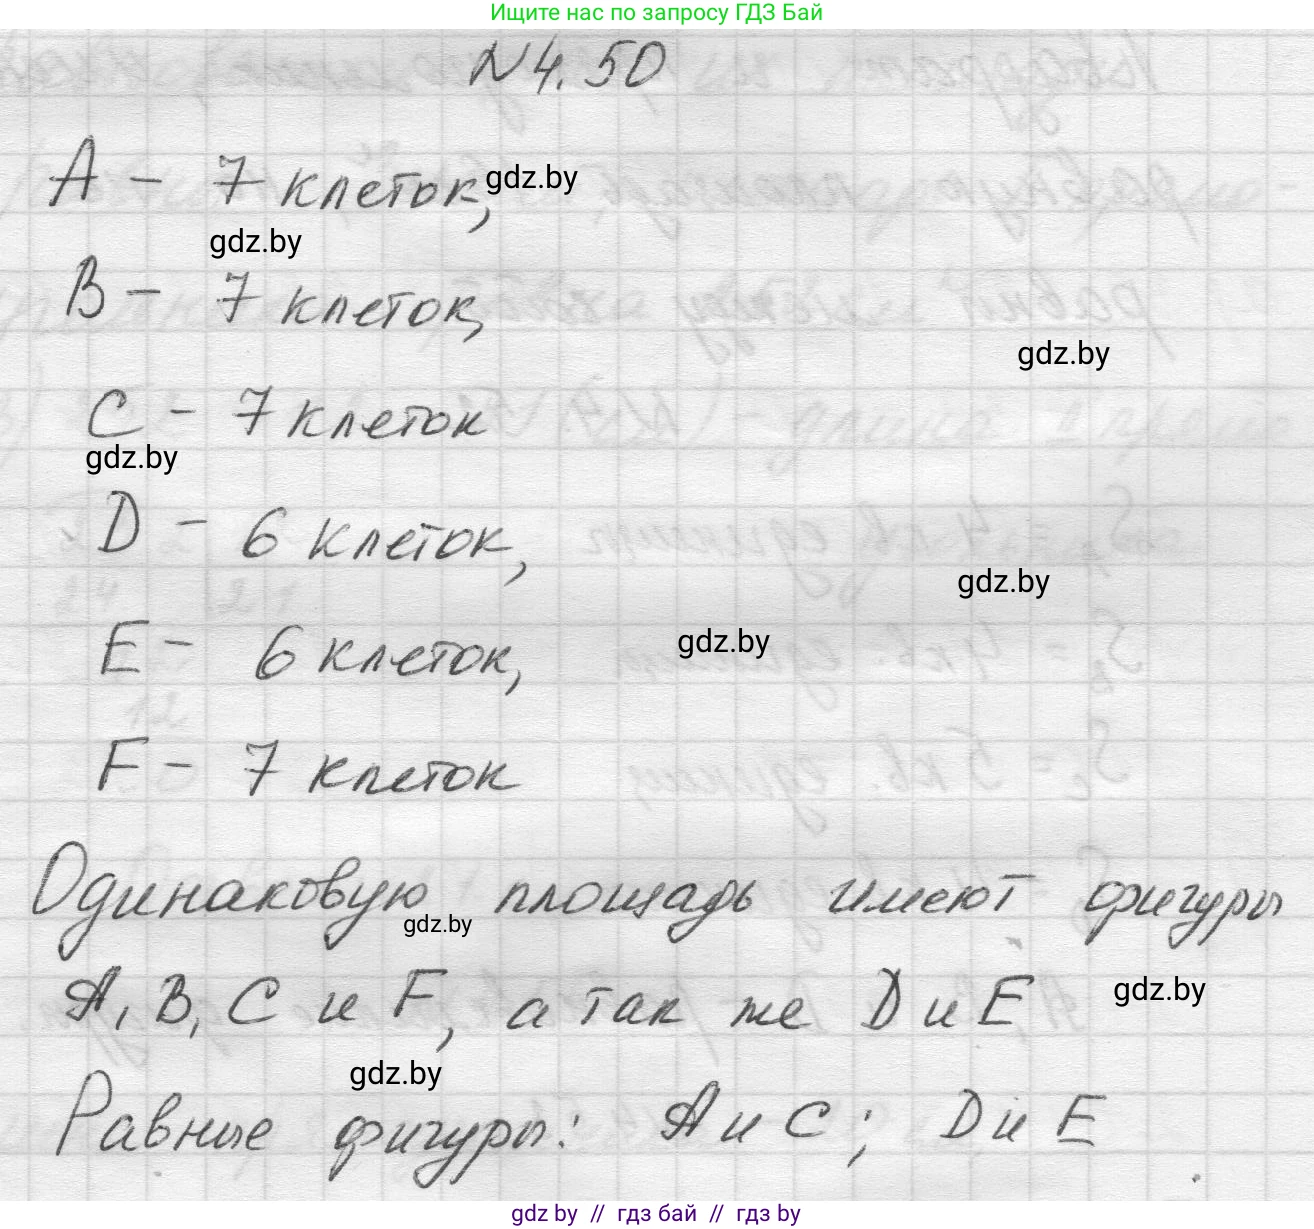 Ищите нас по запросу ГДЗ Бай
№ 4.50
A - 7 клеток,
gdz.by
gdz.by
B - 7 клеток,
gdz.by
C - 7 клеток
gdz.by
D - 6 клеток,
gdz.by
E - 6 клеток,
gdz.by
F - 7 клеток
Одинаковую площадь имеют фигуры
gdz.by
A, B, C и F, а так же D и E
gdz.by
gdz.by
Равные фигуры: A и C; D и E
gdz by // гдз бай // гдз by